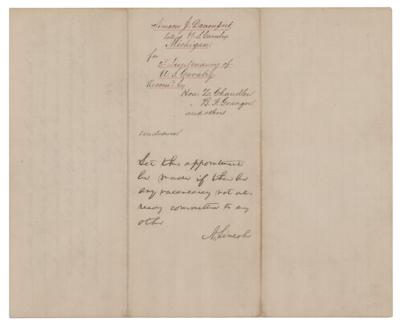 J. Davenport
U.S. Cavalry
Michigan
for
a Lieutenancy of
U.S. Cavalry
Recomd by
Hon. Z. Chandler
B. F. Granger
and others
Let this appointment
be made if there be
any vacancy not al-
ready committed to any
other
A. Lincoln